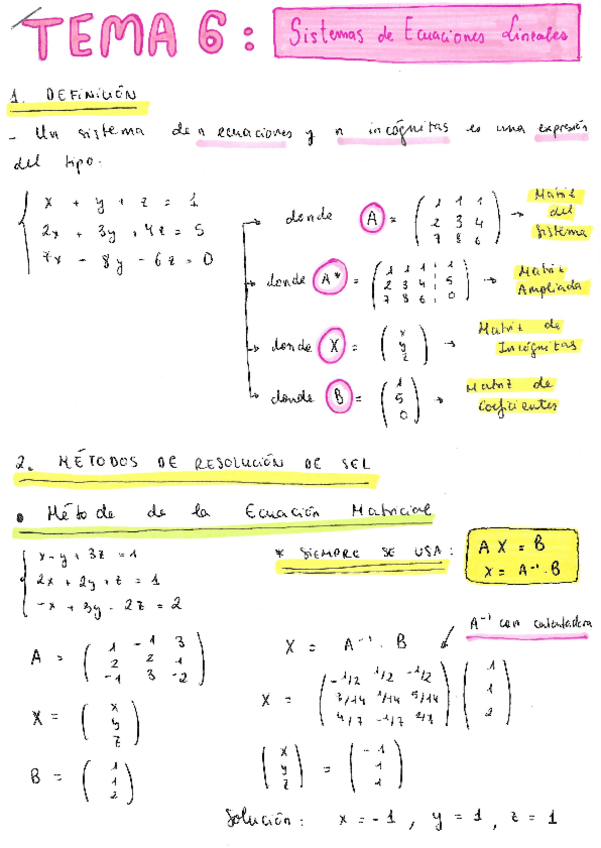 TEMA 6: Sistemas de Ecuaciones Lineales
1. DEFINICIÓN
- Un sistema de n ecuaciones y n incógnitas es una expresión
del tipo:
x + y + z = 1
2x + 3y + 4z = 5
7x - 8y - 6z = 0
donde A = ( 1 1 1 / 2 3 4 / 7 8 6 ) → Matriz del Sistema
donde A* = ( 1 1 1 1 / 2 3 4 5 / 7 8 6 0 ) → Matriz Ampliada
donde X = ( x / y / z ) → Matriz de Incógnitas
donde B = ( 1 / 5 / 0 ) → Matriz de Coeficientes
2. MÉTODOS DE RESOLUCIÓN DE SEL
• Método de la Ecuación Matricial
x - y + 3z = 1
2x + 2y + z = 1
-x + 3y - 2z = 2
* SIEMPRE SE USA:
A X = B
X = A⁻¹ · B
A = ( 1 -1 3 / 2 2 1 / -1 3 -2 )
X = ( x / y / z )
B = ( 1 / 1 / 2 )
A⁻¹ con calculadora
X = A⁻¹ · B
X = ( -1/2 1/2 -1/2 / 3/14 1/14 5/14 / 4/7 -1/7 2/7 ) ( 1 / 1 / 2 )
( x / y / z ) = ( -1 / 1 / 1 )
Solución: x = -1 , y = 1 , z = 1